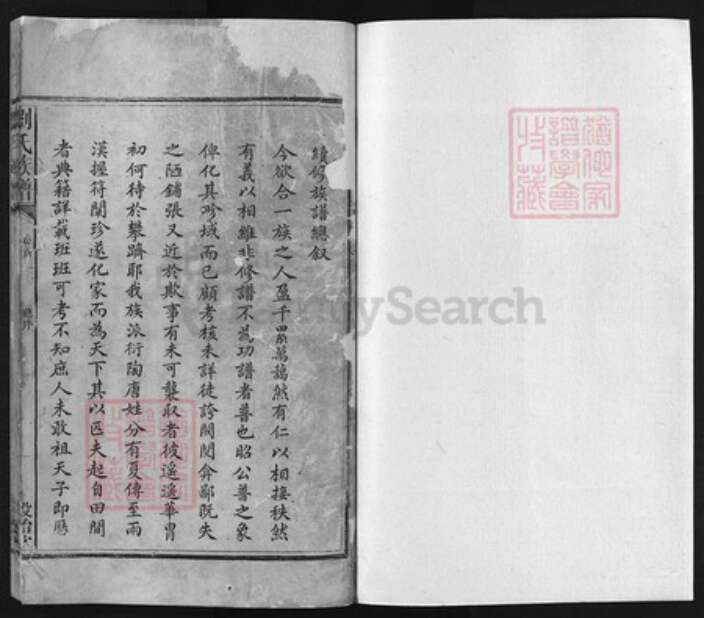 續修族譜總叙
今欲合一族之人盈千累萬藹然有仁以相接秩然
有義以相維非修譜不為功譜者普也昭公普之象
俾化其畛域而已顧考核未詳徒誇閥閱弇鄙既失
之陋鋪張又近於欺事有未可襲取者彼遥遥華胄
初何待於攀躋耶我族派衍陶唐姓分有夏傳至兩
漢握符闡珍遂化家而為天下其以匹夫起自田間
者典籍詳載班班可考不知庶人未敢祖天子即應
劉氏族譜
總序
FamilySearch
譜學會